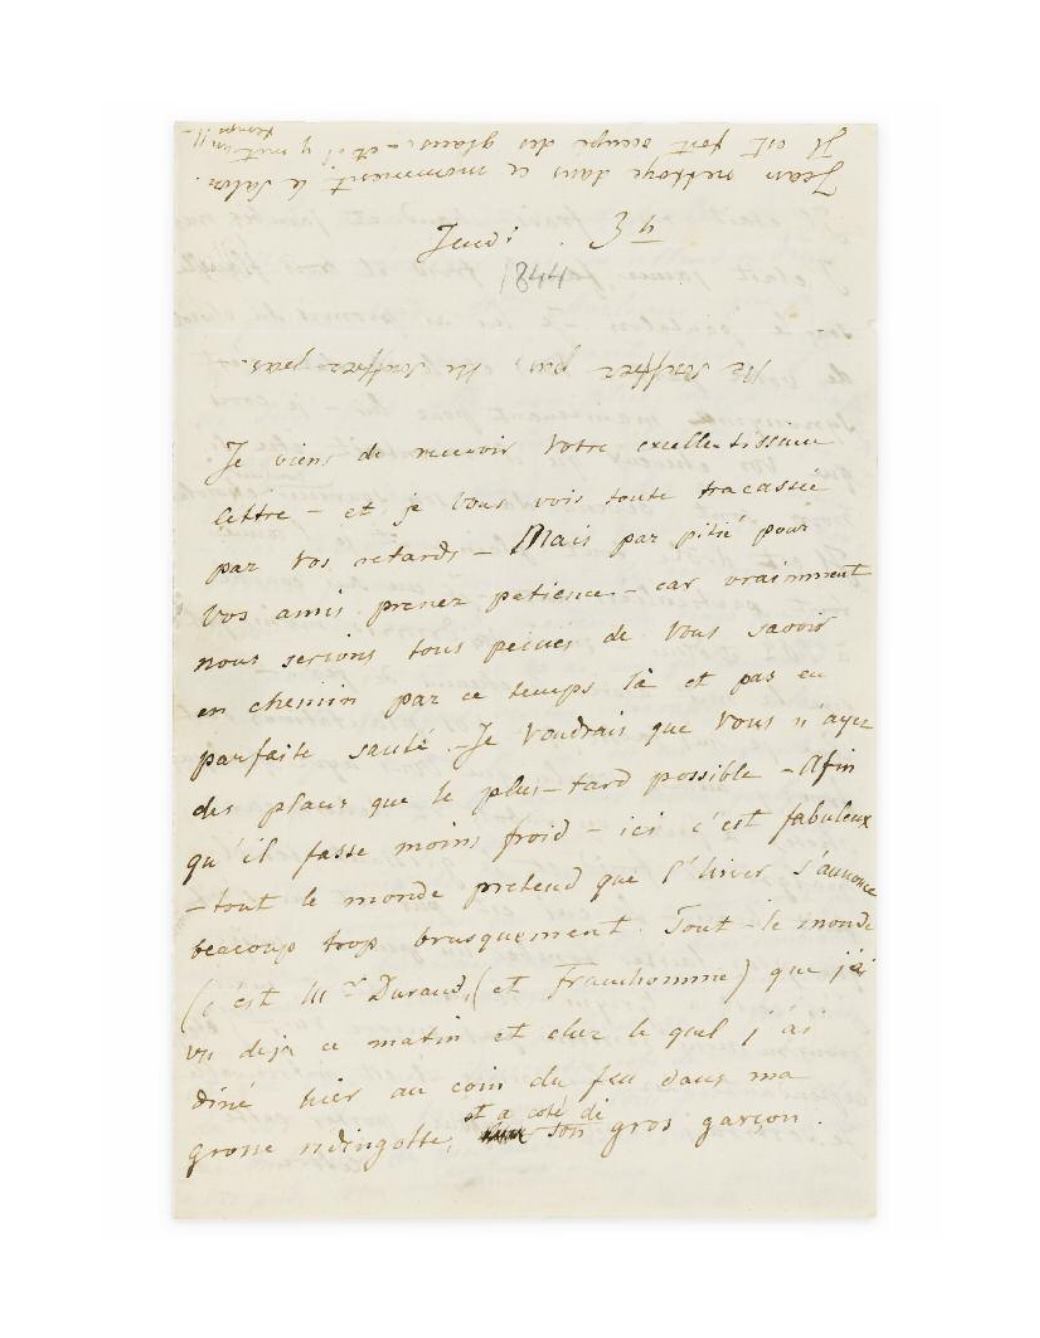 Jeudi. 3 h
1844
Ne souffrez pas ne souffrez pas.
Je viens de recevoir votre excellentissime
lettre – et je vous vois toute tracassée
par vos retards – Mais par pitié pour
vos amis prenez patience – car vraimment
nous serions tous peinés de vous savoir
en chemin par ce temps là et pas en
parfaite santé. – Je voudrais que vous n'ayez
des places que le plus-tard possible – Afin
qu'il fasse moins froid – ici c'est fabuleux
– tout le monde pretend que l'hiver s'annonce
beacoup trop brusquement. Tout-le monde
(c'est Mr Durand, (et Franchomme) que j'ai
vu deja ce matin et chez le quel j'ai
diné hier au coin du feu dans ma
grosse redingotte, et a coté de son gros garçon.
Jean nettoye dans ce momment le Salon.
Il est fort occupé des glaces – et il y met son
temps !! –